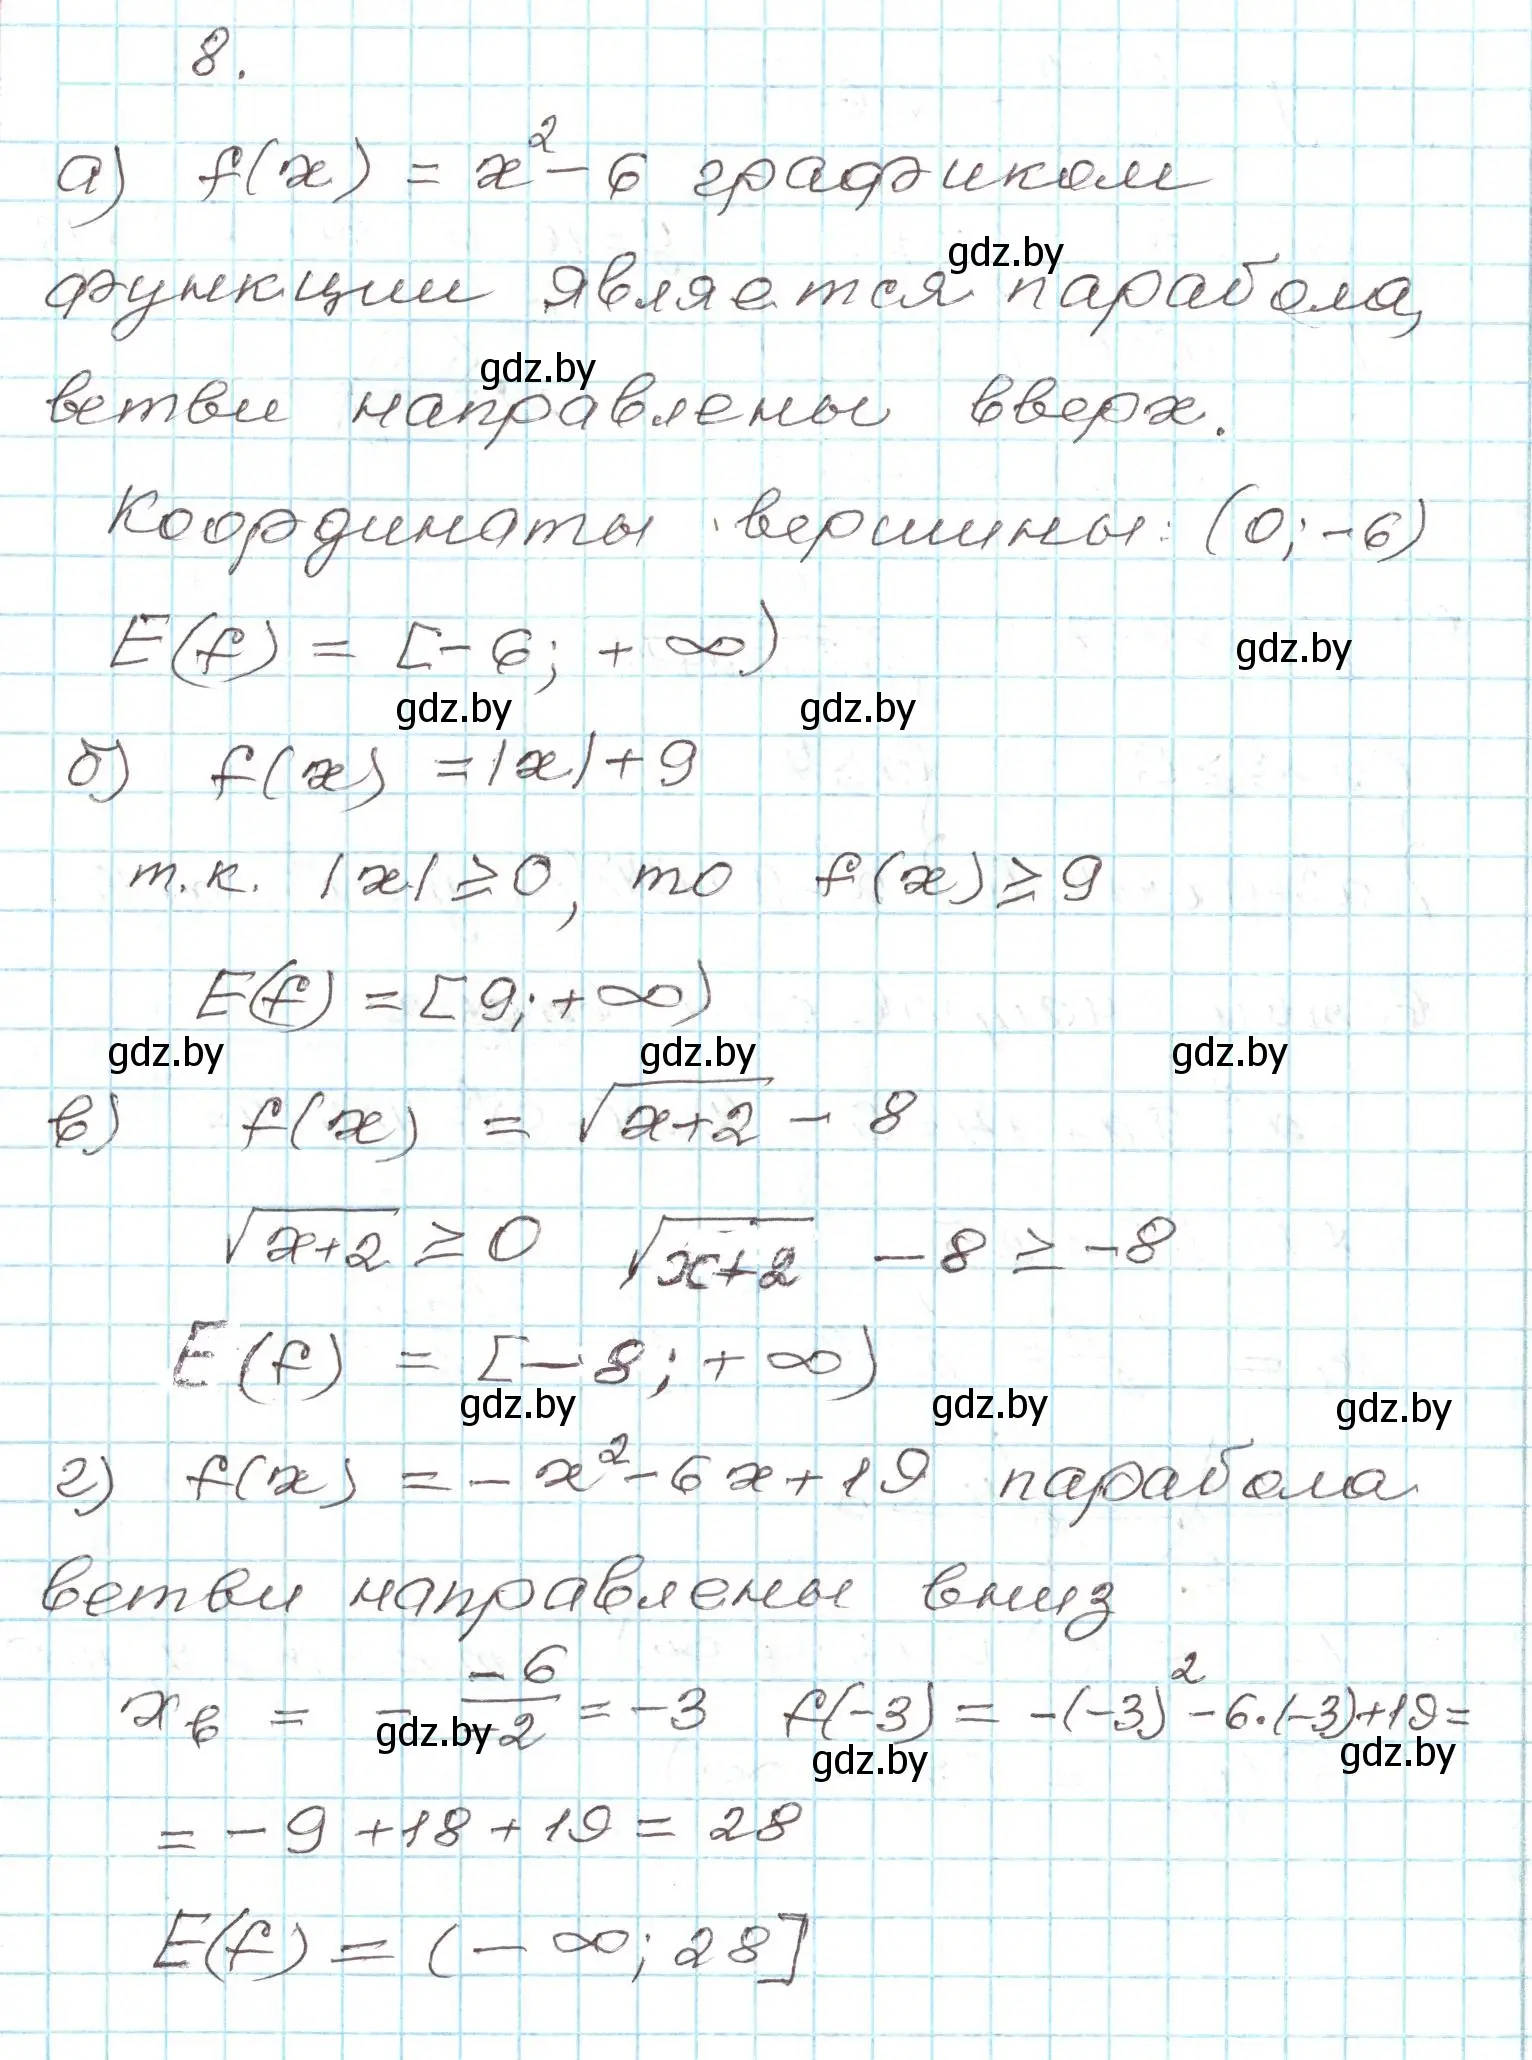 8.
а) f(x) = x² - 6 графиком
функции является парабола,
ветви направлены вверх.
Координаты вершины: (0; -6)
E(f) = [-6; +∞)
б) f(x) = |x| + 9
т.к. |x| ≥ 0, то f(x) ≥ 9
E(f) = [9; +∞)
в) f(x) = √(x+2) - 8
√(x+2) ≥ 0 √(x+2) - 8 ≥ -8
E(f) = [-8; +∞)
г) f(x) = -x² - 6x + 19 парабола
ветви направлены вниз
xв = - -6/-2 = -3 f(-3) = -(-3)² - 6·(-3) + 19 =
= -9 + 18 + 19 = 28
E(f) = (-∞; 28]
gdz.by
gdz.by
gdz.by
gdz.by
gdz.by
gdz.by
gdz.by
gdz.by
gdz.by
gdz.by
gdz.by
gdz.by
gdz.by
gdz.by